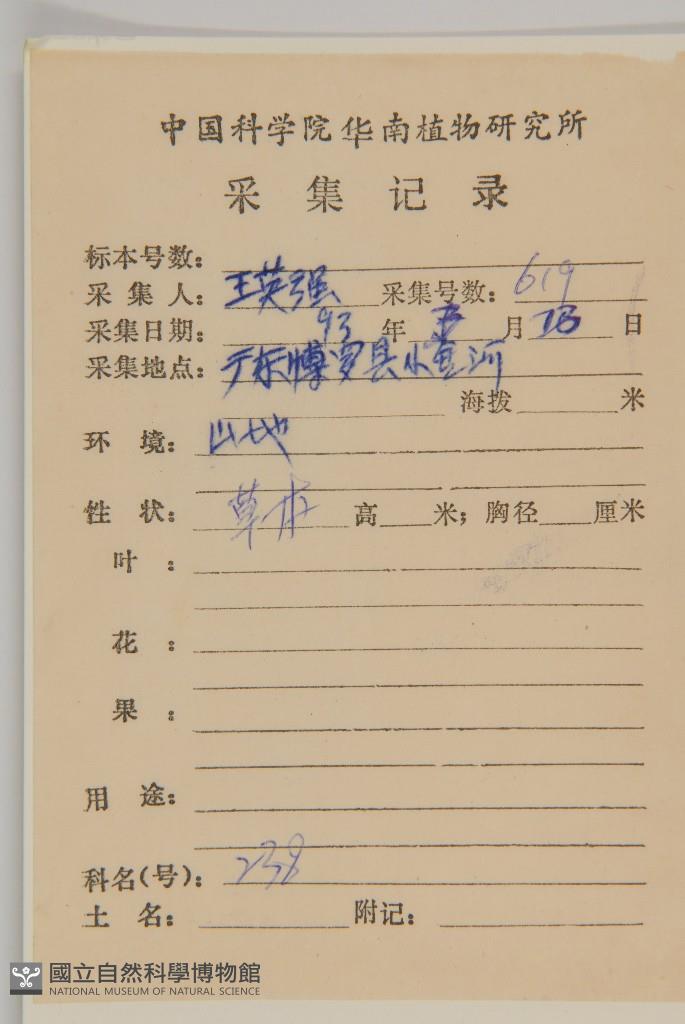 中国科学院华南植物研究所
采集记录
标本号数：
采集人：王英强 采集号数：619
采集日期：93年 月 日
采集地点：广东博罗县小 河
海拨 米
环境：山地
性状：草本 高 米；胸径 厘米
叶：
花：
果：
用途：
科名(号)：238
土名： 附记：
國立自然科學博物館
NATIONAL MUSEUM OF NATURAL SCIENCE